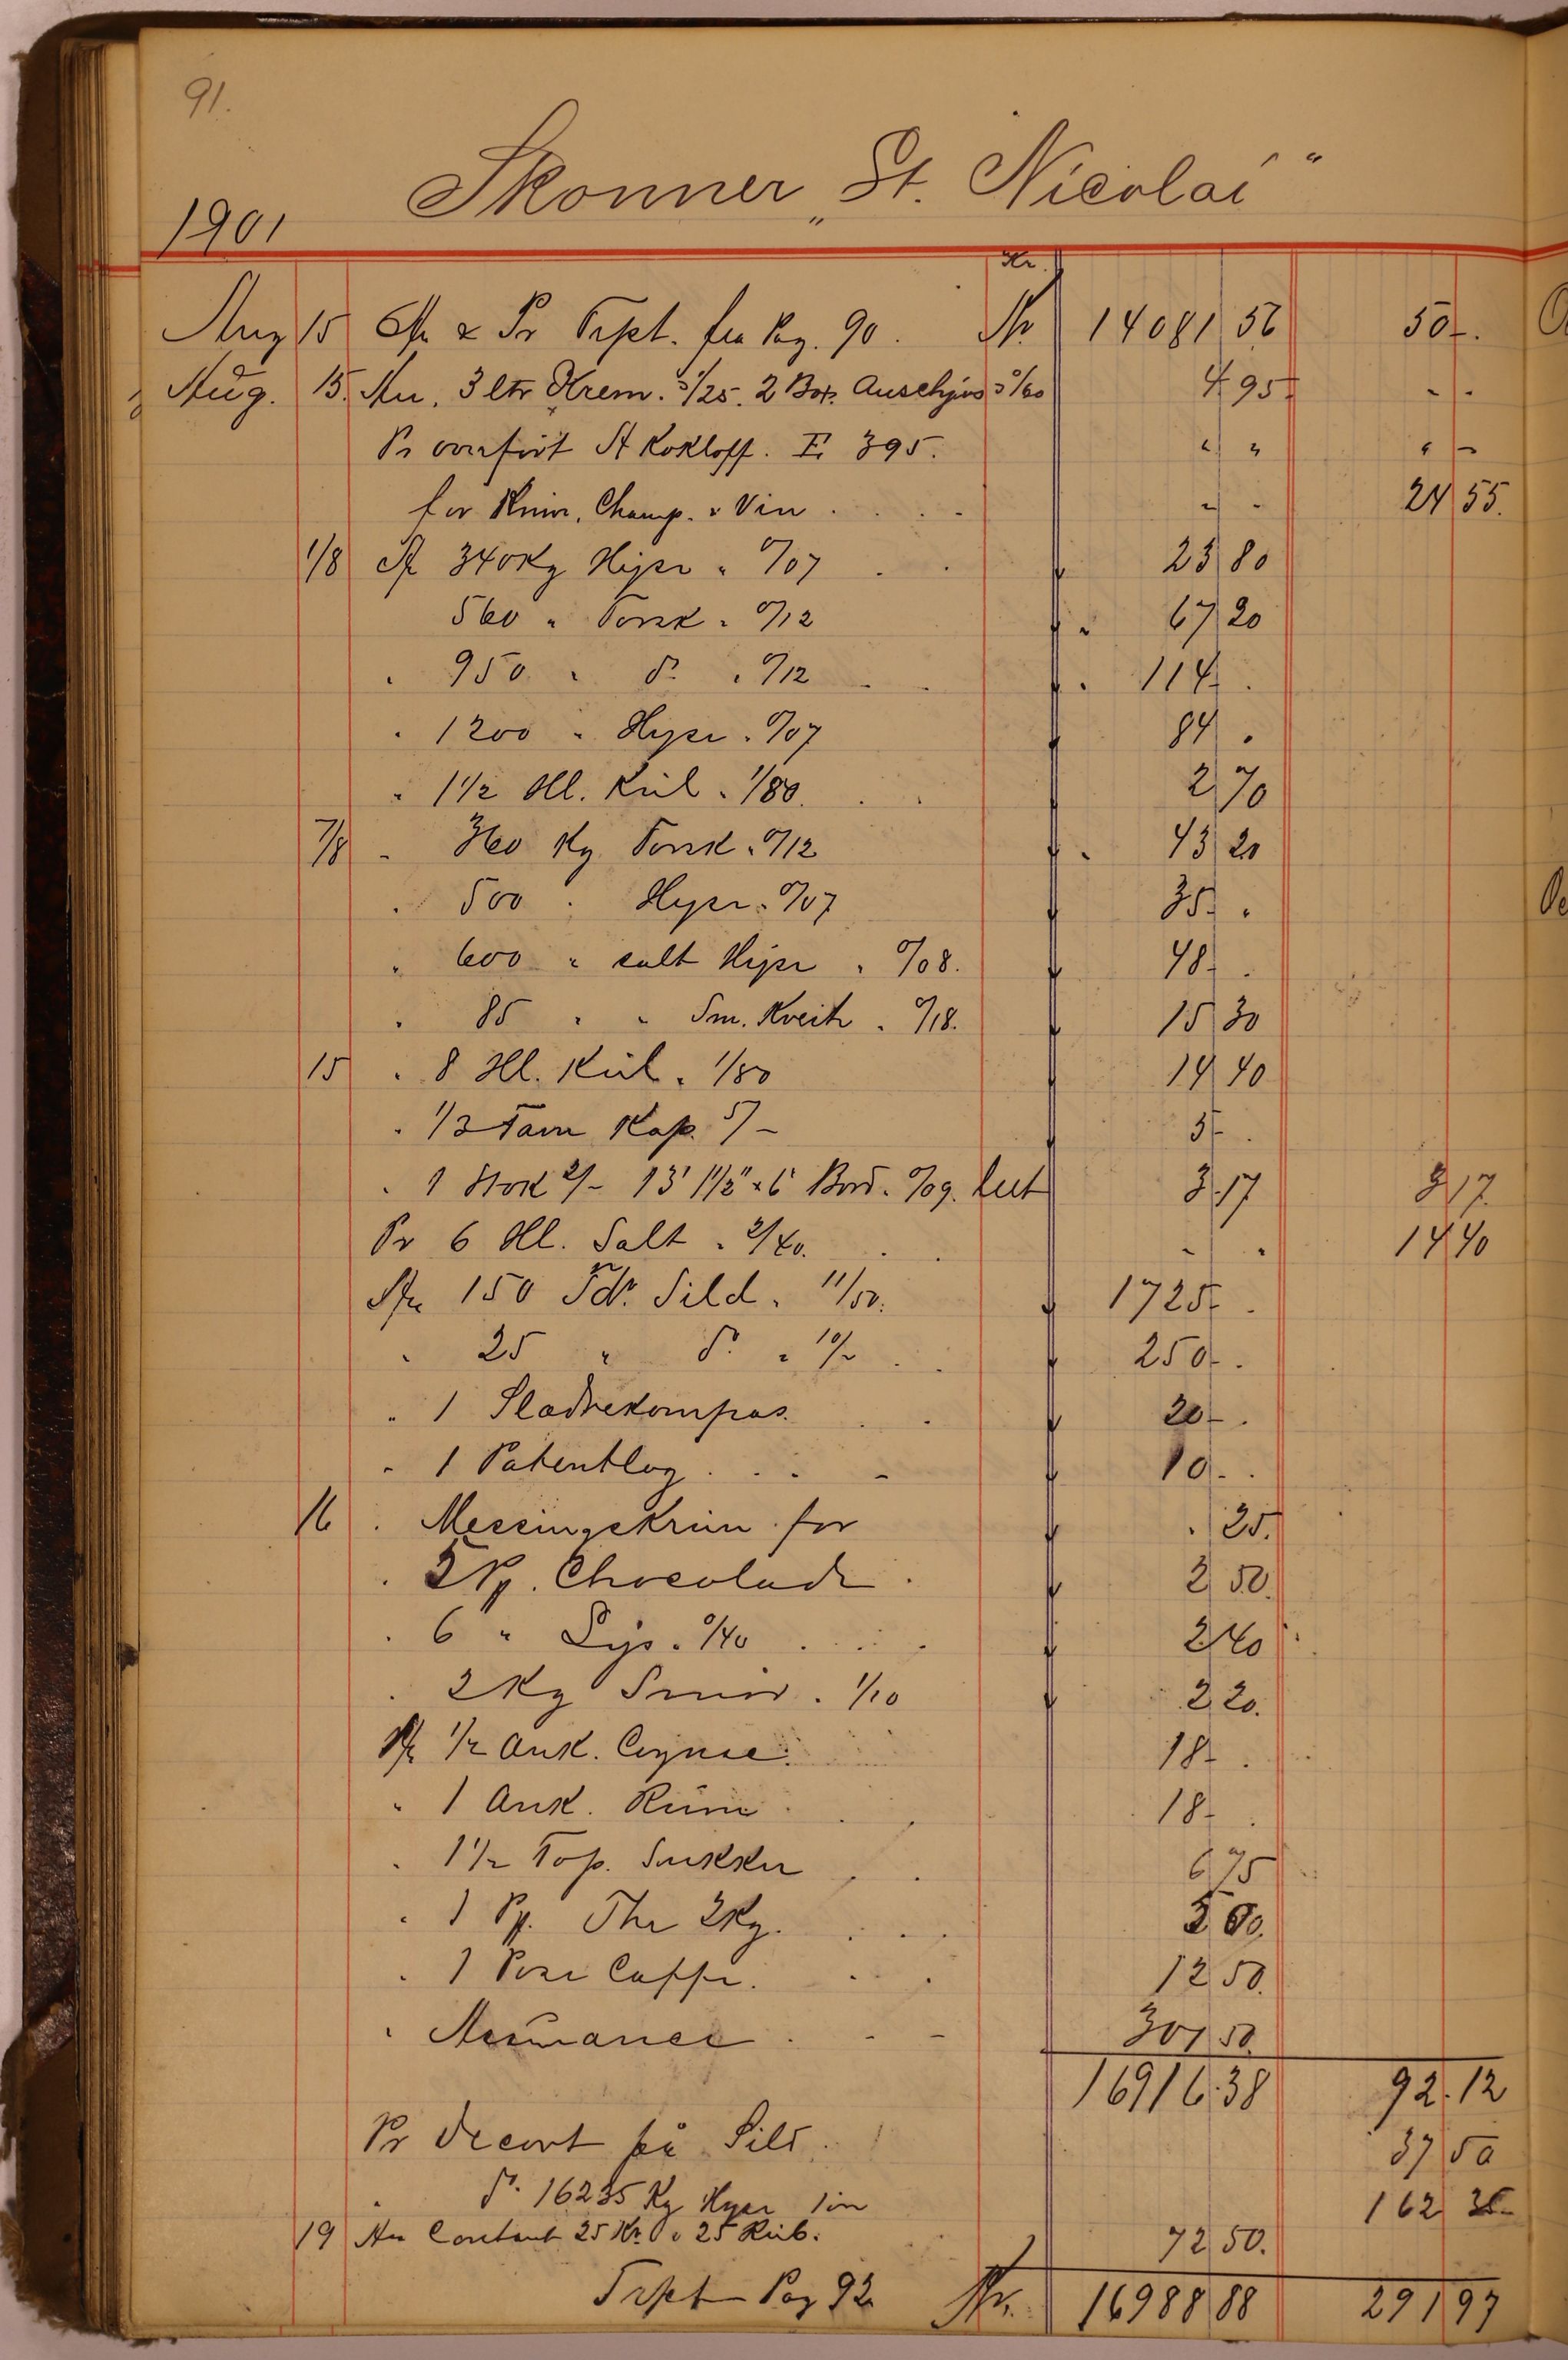 91.
Skonner „St. Nicolai“
1901
Kr.
Aug 15 An & Pr Trpt. fra Pag. 90. Kr. 14081 56 50 -.
Aug. 15. An. 3 ltr Krem. 1/25. 2 Box. Auschjovs 0/60 4 95 - -
Pr overfört St Kokloff. F. 395. " " " -
for Vin, Champ. & Vin . . . . - - 24 55.
1/8 An 340 Kg Hyse " 0/07 . . 23 80
560 " Torsk " 0/12 " 67 20
" 950 " do " 0/12 . . " 114 - .
" 1200 " Hyse " 0/07 84 .
" 1 1/2 Hl. Kul " 1/80. . . 2 70
7/8 " 360 Kg Torsk " 0/12 " 43 20
" 500 " Hyse " 0/07 35 - .
" 600 " salt Hyse " 0/08. 48 - .
" 85 " " Sm. Kveite " 0/18. 15 30
15 " 8 Hl. Kul " 1/80 14 40
" 1/3 Favn Kap. 5/- 5 - .
" 1 Stok 2/- 13' 1 1/2" x 6" Bord " 0/09. 3.17 3 17
Pr 6 Hl. Salt " 2/40. . . - . 14 40
An 150 Tdr. Sild " 11/50. 1725 - .
" 25 " do " 10/- . . 250 - .
" 1 Sladrekompas. . . 20 - .
" 1 Patentlog . . . - 10 - .
16 " Messingskrun for . 25.
" 5 Pk. Chocolade . 2 50.
" 6 " Lys " 0/40 . . . 2 40
" 2 Kg Smør " 1/10 2 20.
An 1/2 Ank. Cognac. 18 - .
" 1 Ank. Rum . . . 18 - .
" 1 1/2 Top. Sukker . . 6 75
" 1 Pk. The 2 Kg. . . . 5 60.
" 1 Pose Caffe. . . . 12 50.
" Assurance . - - 301 50.
16916.38 92.12
Pr Decort på Sild . 37 50
" do. 16235 Kg Hyse 1 øre 162 35 -
19 An Contant 25 Kr. & 25 Rub. 72 50.
Trpt Pag 92 Kr. 16988 88 291 97